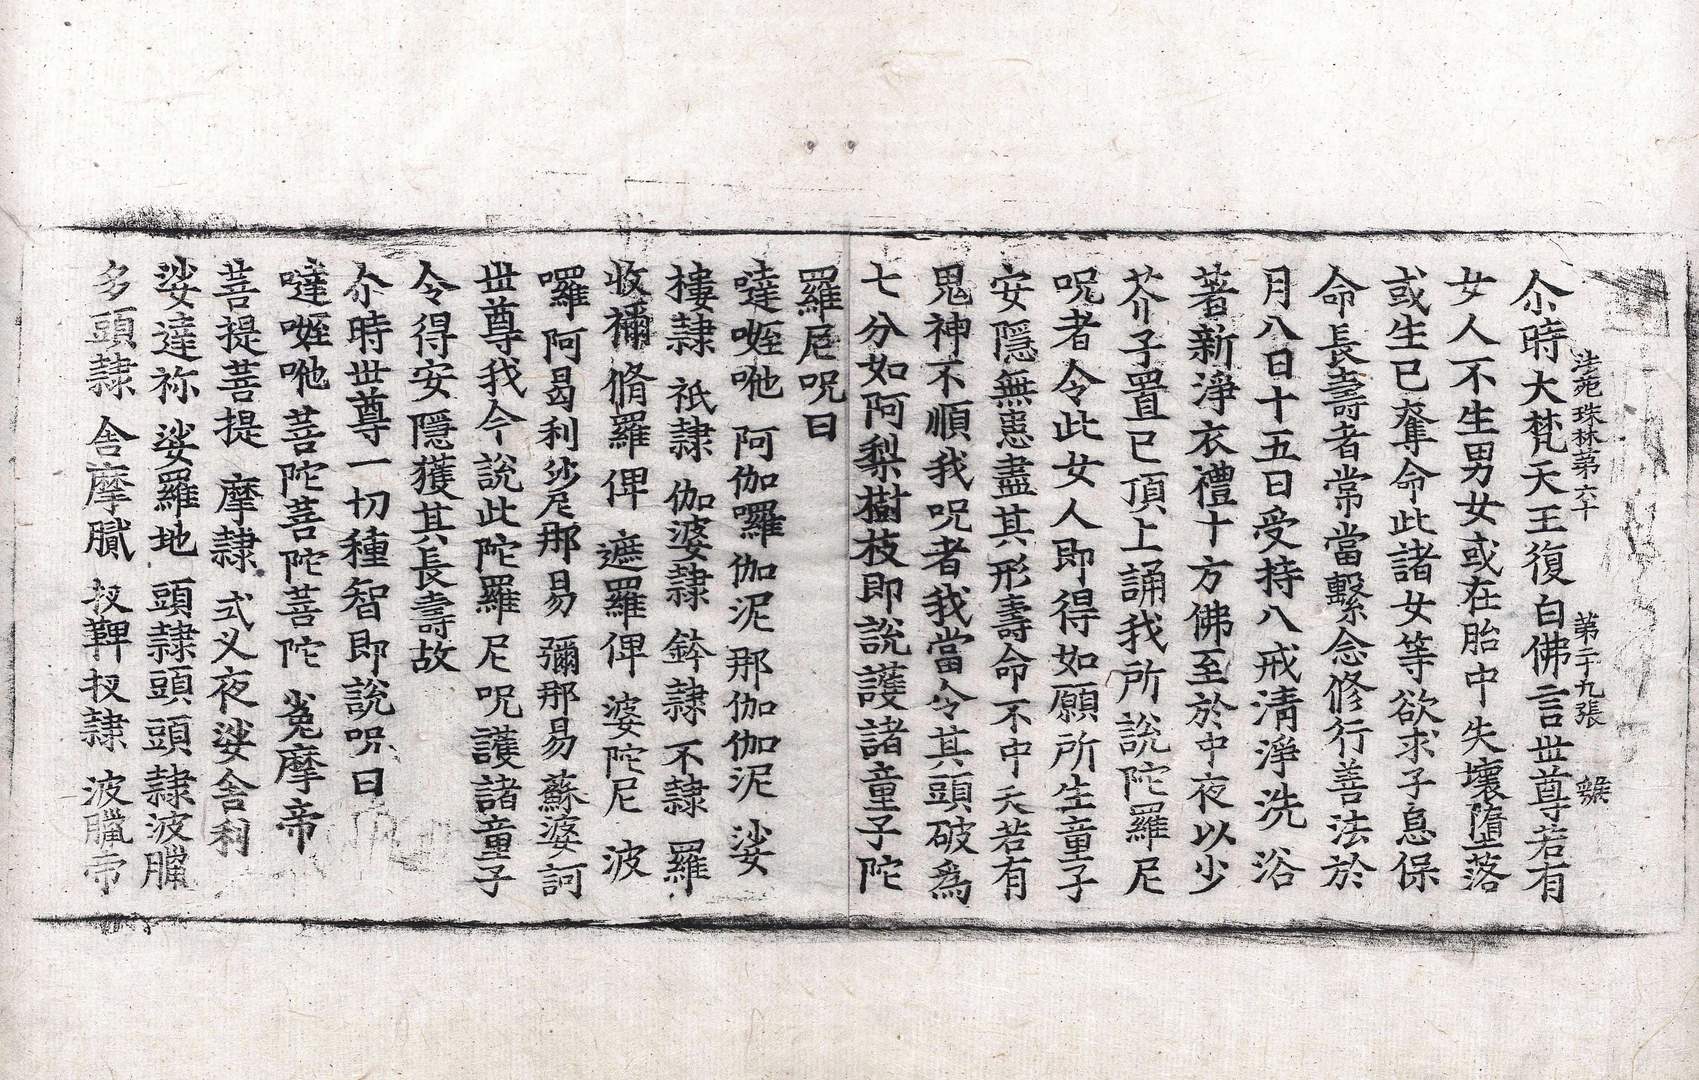 法苑珠林第六十 第二十九張
尒時大梵天王復白佛言世尊若有
女人不生男女或在胎中失壞墮落
或生已奪命此諸女等欲求子息保
命長壽者常當繫念修行善法於
月八日十五日受持八戒清淨洗浴
著新淨衣禮十方佛至於中夜以少
芥子置已頂上誦我所說陀羅尼
呪者令此女人即得如願所生童子
安隱無恚盡其形壽命不中夭若有
鬼神不順我呪者我當令其頭破爲
七分如阿梨樹枝即說護諸童子陀
羅尼呪曰
噠𡄣吔 阿伽囉伽泥 那伽伽泥 娑
樓隷 祇隷 伽婆隷 鉢隷 不隷 羅
收禰 脩羅俾 遮羅俾 婆陀尼 波
囉阿曷利沙尼那易 彌那易蘇婆訶
世尊我今說此陀羅尼呪護諸童子
令得安隱獲其長壽故
尒時世尊一切種智即說呪曰
噠𡄣吔 菩陀菩陀菩陀 㝹摩帝
菩提菩提 摩隷 式叉夜娑舍利
娑達祢 娑羅地 頭隷頭隷 頭隷波臘
多頭隷 舍摩膩 扠鞞扠隷 波臘帝